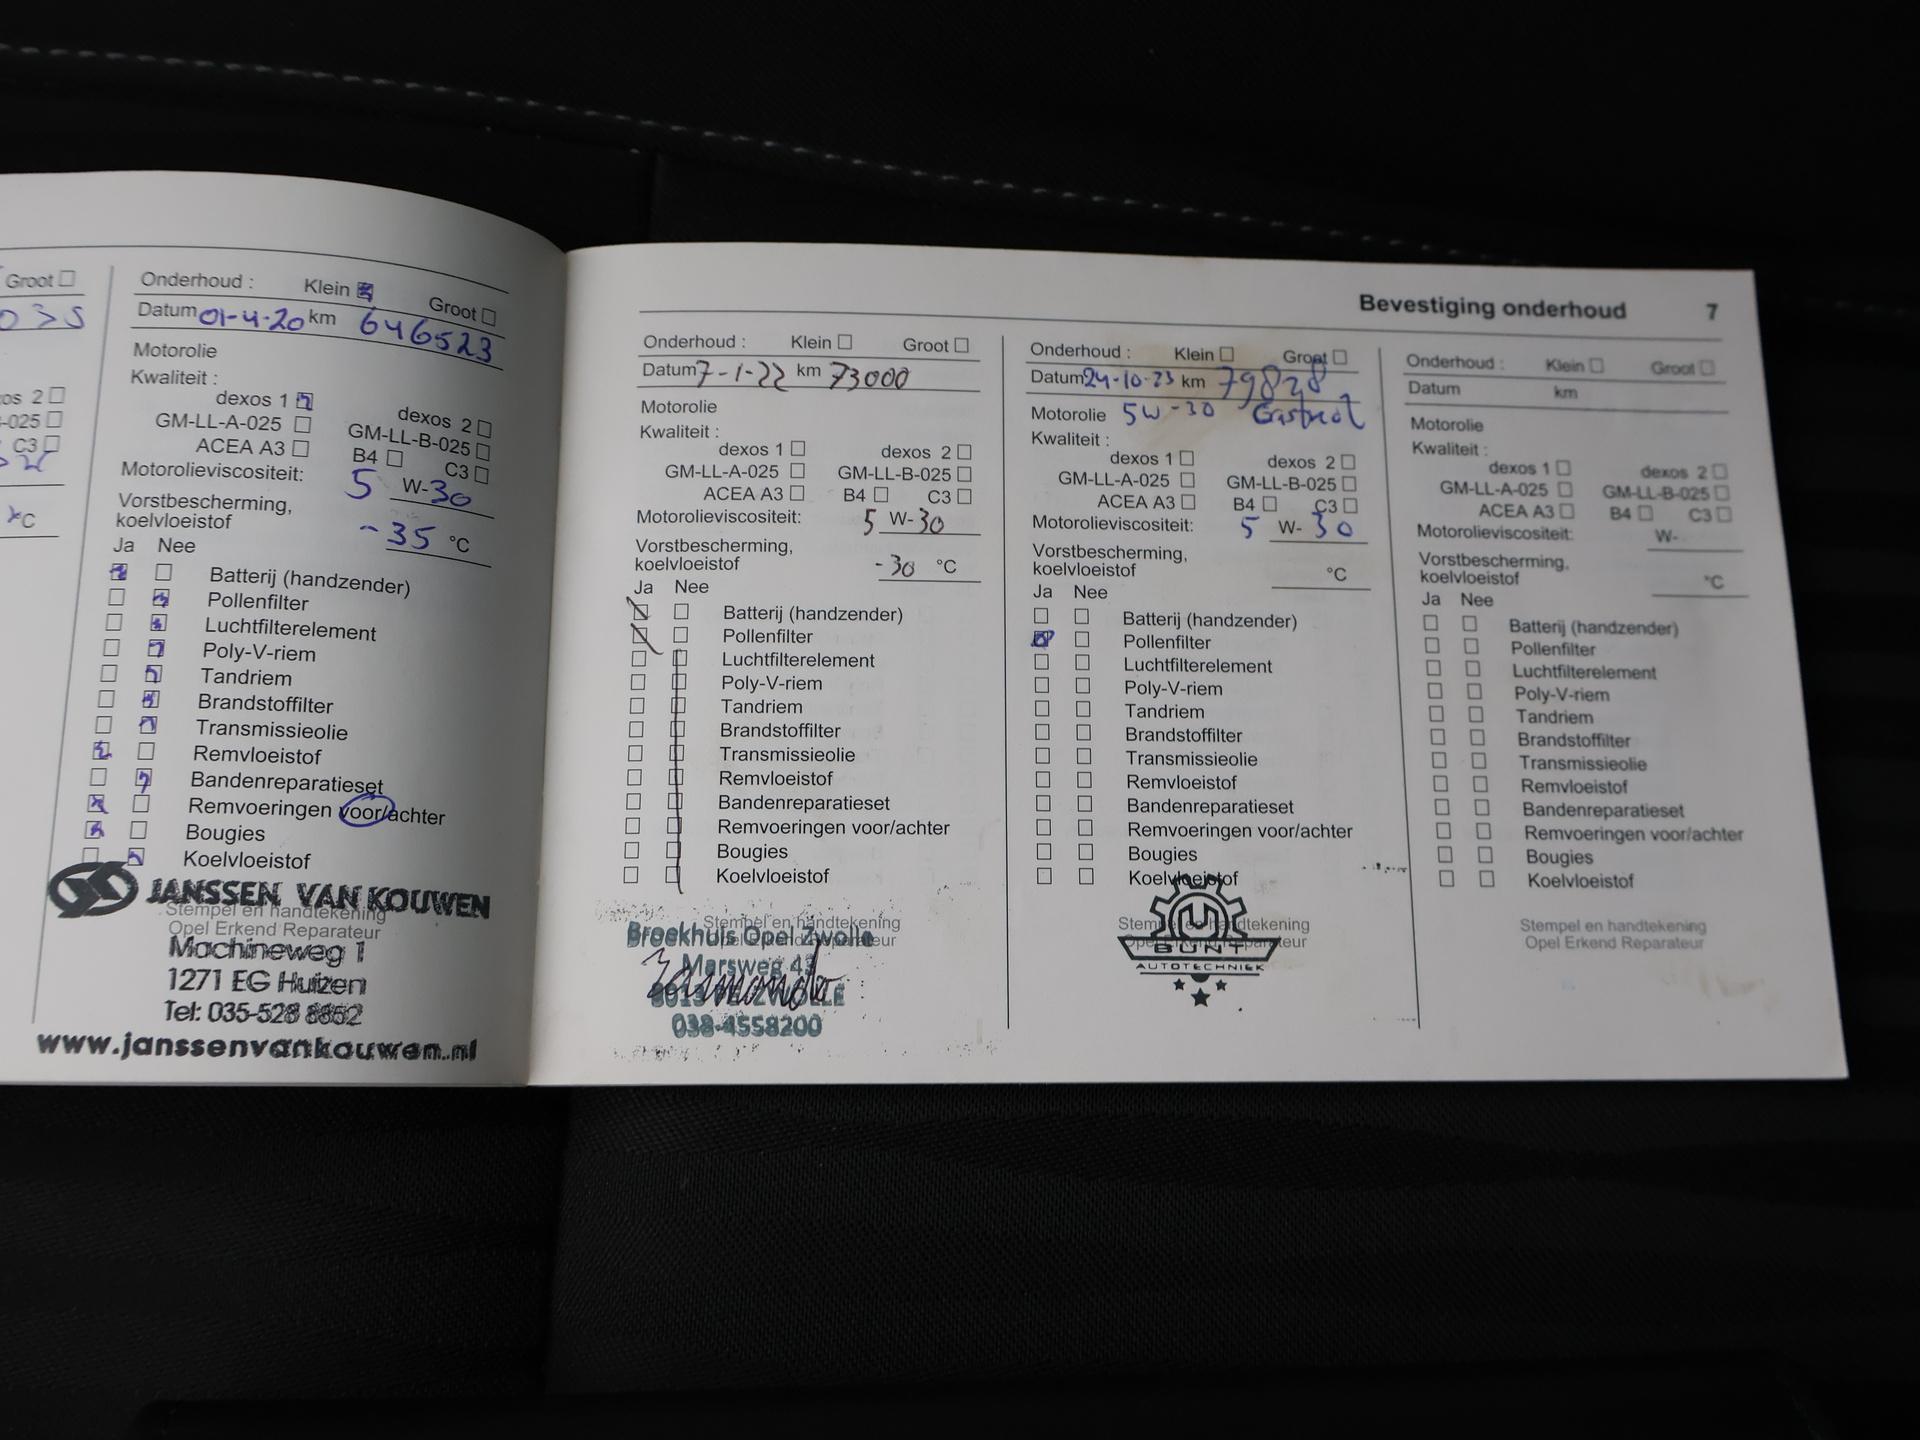 Groot
Onderhoud : Klein Groot
Datum 01-4-20 km 646523
Motorolie
Kwaliteit :
dexos 1 dexos 2
GM-LL-A-025 GM-LL-B-025
ACEA A3 B4 C3
Motorolieviscositeit: 5 W-30
Vorstbescherming,
koelvloeistof -35 °C
Ja Nee
Batterij (handzender)
Pollenfilter
Luchtfilterelement
Poly-V-riem
Tandriem
Brandstoffilter
Transmissieolie
Remvloeistof
Bandenreparatieset
Remvoeringen voor/achter
Bougies
Koelvloeistof
JANSSEN VAN KOUWEN
Stempel en handtekening
Opel Erkend Reparateur
Machineweg 1
1271 EG Huizen
Tel: 035-528 8852
www.janssenvankouwen.nl
Bevestiging onderhoud 7
Onderhoud : Klein Groot
Datum 7-1-22 km 73000
Motorolie
Kwaliteit :
dexos 1 dexos 2
GM-LL-A-025 GM-LL-B-025
ACEA A3 B4 C3
Motorolieviscositeit: 5 W-30
Vorstbescherming,
koelvloeistof -30 °C
Ja Nee
Batterij (handzender)
Pollenfilter
Luchtfilterelement
Poly-V-riem
Tandriem
Brandstoffilter
Transmissieolie
Remvloeistof
Bandenreparatieset
Remvoeringen voor/achter
Bougies
Koelvloeistof
Stempel en handtekening
Broekhuis Opel Zwolle
Opel Erkend Reparateur
Marsweg 43
ZWOLLE
038-4558200
Onderhoud : Klein Groot
Datum 24-10-23 km 79828
Motorolie 5W-30 Castrol
Kwaliteit :
dexos 1 dexos 2
GM-LL-A-025 GM-LL-B-025
ACEA A3 B4 C3
Motorolieviscositeit: 5 W-30
Vorstbescherming,
koelvloeistof °C
Ja Nee
Batterij (handzender)
Pollenfilter
Luchtfilterelement
Poly-V-riem
Tandriem
Brandstoffilter
Transmissieolie
Remvloeistof
Bandenreparatieset
Remvoeringen voor/achter
Bougies
Koelvloeistof
Stempel en handtekening
Opel Erkend Reparateur
BUNT
AUTOTECHNIEK
Onderhoud : Klein Groot
Datum km
Motorolie
Kwaliteit :
dexos 1 dexos 2
GM-LL-A-025 GM-LL-B-025
ACEA A3 B4 C3
Motorolieviscositeit: W-
Vorstbescherming,
koelvloeistof °C
Ja Nee
Batterij (handzender)
Pollenfilter
Luchtfilterelement
Poly-V-riem
Tandriem
Brandstoffilter
Transmissieolie
Remvloeistof
Bandenreparatieset
Remvoeringen voor/achter
Bougies
Koelvloeistof
Stempel en handtekening
Opel Erkend Reparateur